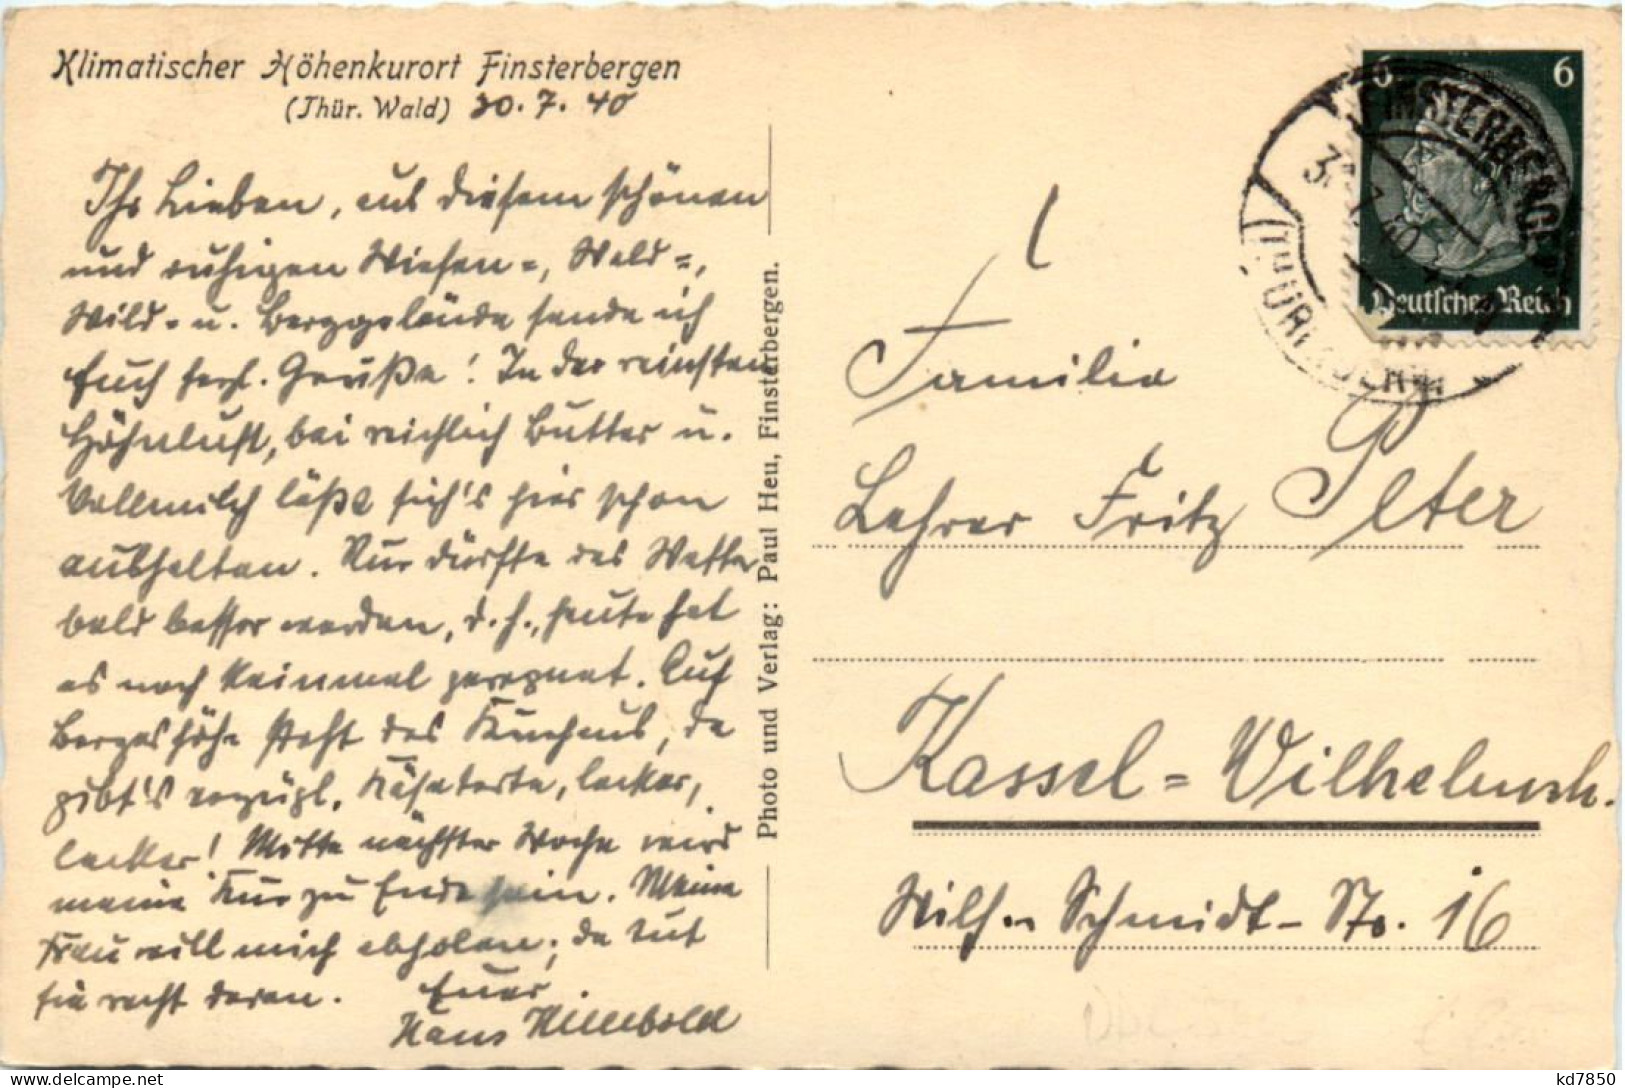 Klimatischer Höhenkurort Finsterbergen
(Thür. Wald) 30.7.40
Ihr Lieben, aus diesem schönen
und ruhigen Wiesen-, Wald-,
Wild- u. Berggelände sende ich
Euch herzl. Grüße! In der reinsten
Höhenluft, bei reichlich Butter u.
Vollmilch läßt sich's hier schon
aushalten. Nur dürfte das Wetter
bald besser werden, d.h., heute hat
es noch keinmal geregnet. Auf
Bergeshöhe steht das Kurhaus, da
gibt's vorzügl. Käsetorte, lecker,
lecker! Mitte nächster Woche wird
meine Kur zu Ende sein. Meine
Frau will mich abholen; da tut
sie recht daran. Euer
Hans Hillebold
Photo und Verlag: Paul Heu, Finsterbergen.
6 6
Deutsches Reich
FINSTERBERGEN
30.7.40
(THÜR
Familie
Lehrer Fritz Peter
Kassel-Wilhelmsh.
Wilh.-Schmidt-Str. 16
kd7850